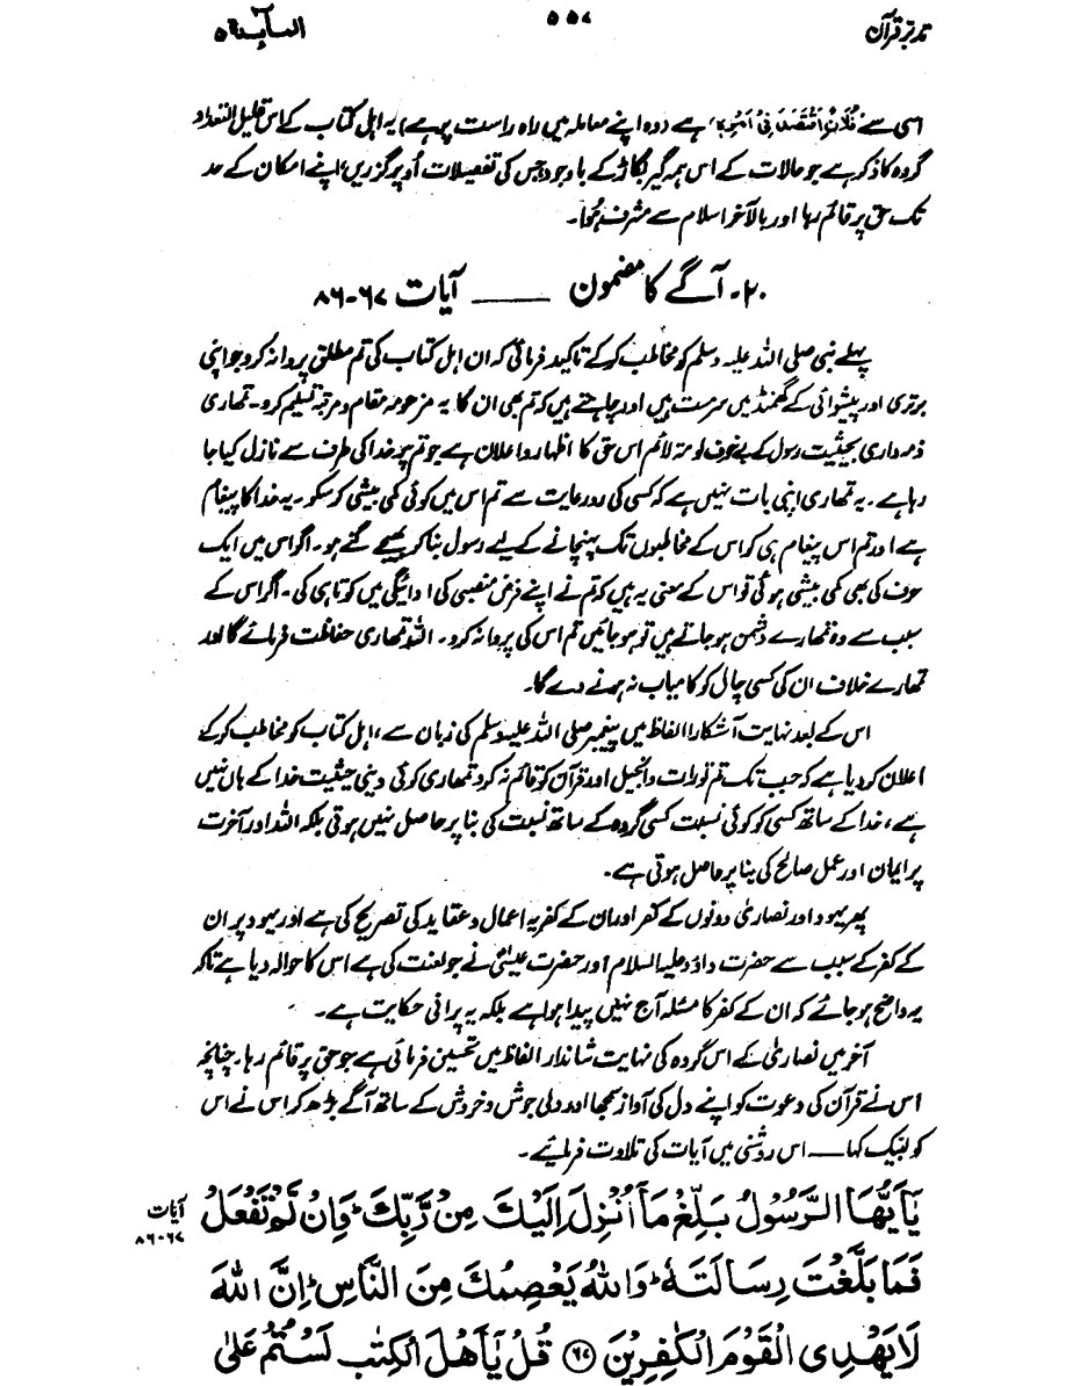 تدبر قرآن ۵۵۷ المآئدة ۵
اسی سے فُلَانٌ اقْتَصَدَ فِیْ اَمْرِہٖ، ہے (وہ اپنے معاملہ میں راہ راست پر ہے) یہ اہل کتاب کے اس قلیل التعداد
گروہ کا ذکر ہے جو حالات کے اس ہمہ گیر بگاڑ کے باوجود جس کی تفصیلات اُوپر گزریں، اپنے امکان کے حد
تک حق پر قائم رہا اور بالآخر اسلام سے مشرف ہُوا۔
۲۰۔ آگے کا مضمون ـــــ آیات ۶۷-۸۶
پہلے نبی صلی اللہ علیہ وسلم کو مخاطب کر کے تاکید فرمائی کہ ان اہل کتاب کی تم مطلق پروا نہ کرو جو اپنی
برتری اور پیشوائی کے گھمنڈ میں سرمست ہیں اور چاہتے ہیں کہ تم بھی ان کا یہ مزعومہ مقام و مرتبہ تسلیم کرو۔ تمھاری
ذمہ داری بحیثیت رسول کے بے خوف لومۃ لائم اس حق کا اظہار و اعلان ہے جو تم پر خدا کی طرف سے نازل کیا جا
رہا ہے۔ یہ تمھاری اپنی بات نہیں ہے کہ کسی کی رو رعایت سے تم اس میں کوئی کمی بیشی کر سکو۔ یہ خدا کا پیغام
ہے اور تم اس پیغام ہی کو اس کے مخاطبوں تک پہنچانے کے لیے رسول بنا کر بھیجے گئے ہو۔ اگر اس میں ایک
حرف کی بھی کمی بیشی ہوئی تو اس کے معنی یہ ہیں کہ تم نے اپنے فرض منصبی کی ادائیگی میں کوتاہی کی۔ اگر اس کے
سبب سے وہ تمھارے دشمن ہو جاتے ہیں تو ہو جائیں تم اس کی پروا نہ کرو۔ اللہ تمھاری حفاظت فرمائے گا اور
تمھارے خلاف ان کی کسی چال کو کامیاب نہ ہونے دے گا۔
اس کے بعد نہایت آشکارا الفاظ میں پیغمبر صلی اللہ علیہ وسلم کی زبان سے، اہل کتاب کو مخاطب کر کے
اعلان کر دیا ہے کہ جب تک تم تورات و انجیل اور قرآن کو قائم نہ کرو تمھاری کوئی دینی حیثیت خدا کے ہاں نہیں
ہے، خدا کے ساتھ کسی کو کوئی نسبت کسی گروہ کے ساتھ نسبت کی بنا پر حاصل نہیں ہوتی بلکہ اللہ اور آخرت
پر ایمان اور عمل صالح کی بنا پر حاصل ہوتی ہے۔
پھر یہود اور نصاریٰ دونوں کے کفر اور ان کے کفریہ اعمال و عقاید کی تصریح کی ہے اور یہود پر ان
کے کفر کے سبب سے حضرت داؤد علیہ السلام اور حضرت عیسیٰؑ نے جو لعنت کی ہے اس کا حوالہ دیا ہے تاکہ
یہ واضح ہو جائے کہ ان کے کفر کا مسئلہ آج نہیں پیدا ہوا ہے بلکہ یہ پرانی حکایت ہے۔
آخر میں نصاریٰ کے اس گروہ کی نہایت شاندار الفاظ میں تحسین فرمائی ہے جو حق پر قائم رہا۔ چنانچہ
اس نے قرآن کی دعوت کو اپنے دل کی آواز سمجھا اور دلی جوش و خروش کے ساتھ آگے بڑھ کر اس نے اس
کو لبیک کہا ـــ اس روشنی میں آیات کی تلاوت فرمائیے۔
یٰۤاَیُّهَا الرَّسُوْلُ بَلِّغْ مَاۤ اُنْزِلَ اِلَیْكَ مِنْ رَّبِّكَ ؕ وَاِنْ لَّمْ تَفْعَلْ آیات ۶۷-۸۶
فَمَا بَلَّغْتَ رِسَالَتَهٗ ؕ وَاللّٰهُ یَعْصِمُكَ مِنَ النَّاسِ ؕ اِنَّ اللّٰهَ
لَا یَهْدِی الْقَوْمَ الْكٰفِرِیْنَ ﴿۶۷﴾ قُلْ یٰۤاَهْلَ الْكِتٰبِ لَسْتُمْ عَلٰی